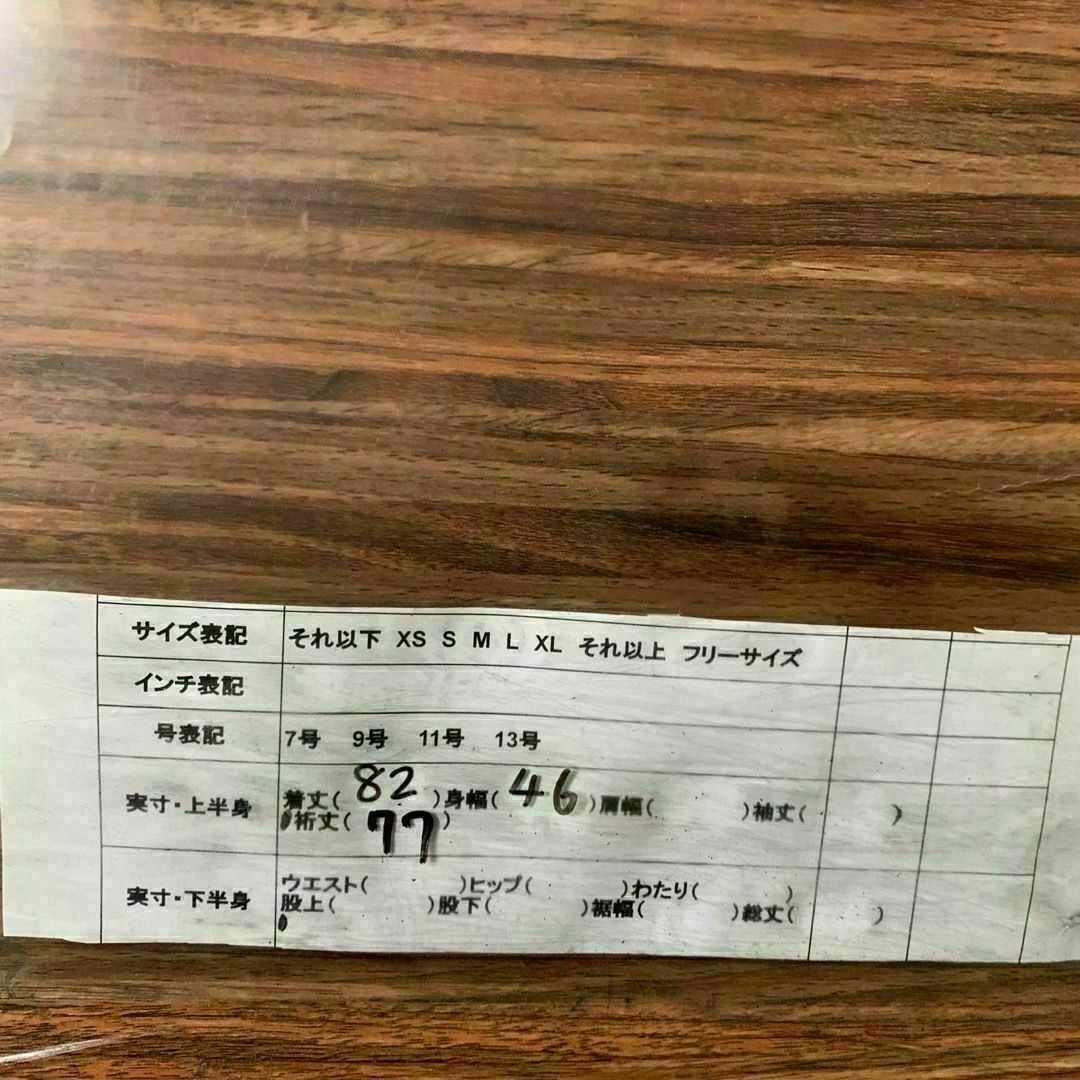 サイズ表記 それ以下 XS S M L XL それ以上 フリーサイズ
インチ表記
号表記 7号 9号 11号 13号
実寸・上半身 着丈( 82 )身幅( 46 )肩幅( )袖丈( )
裄丈( 77 )
実寸・下半身 ウエスト( )ヒップ( )わたり( )
股上( )股下( )裾幅( )総丈( )